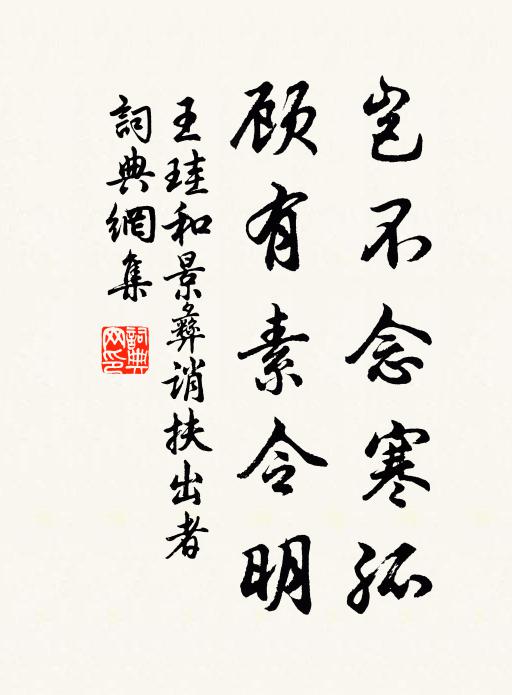 岂不念寒孤
顾有素令明
王珪和景彝诮扶出者
詞典網集
詞典网印